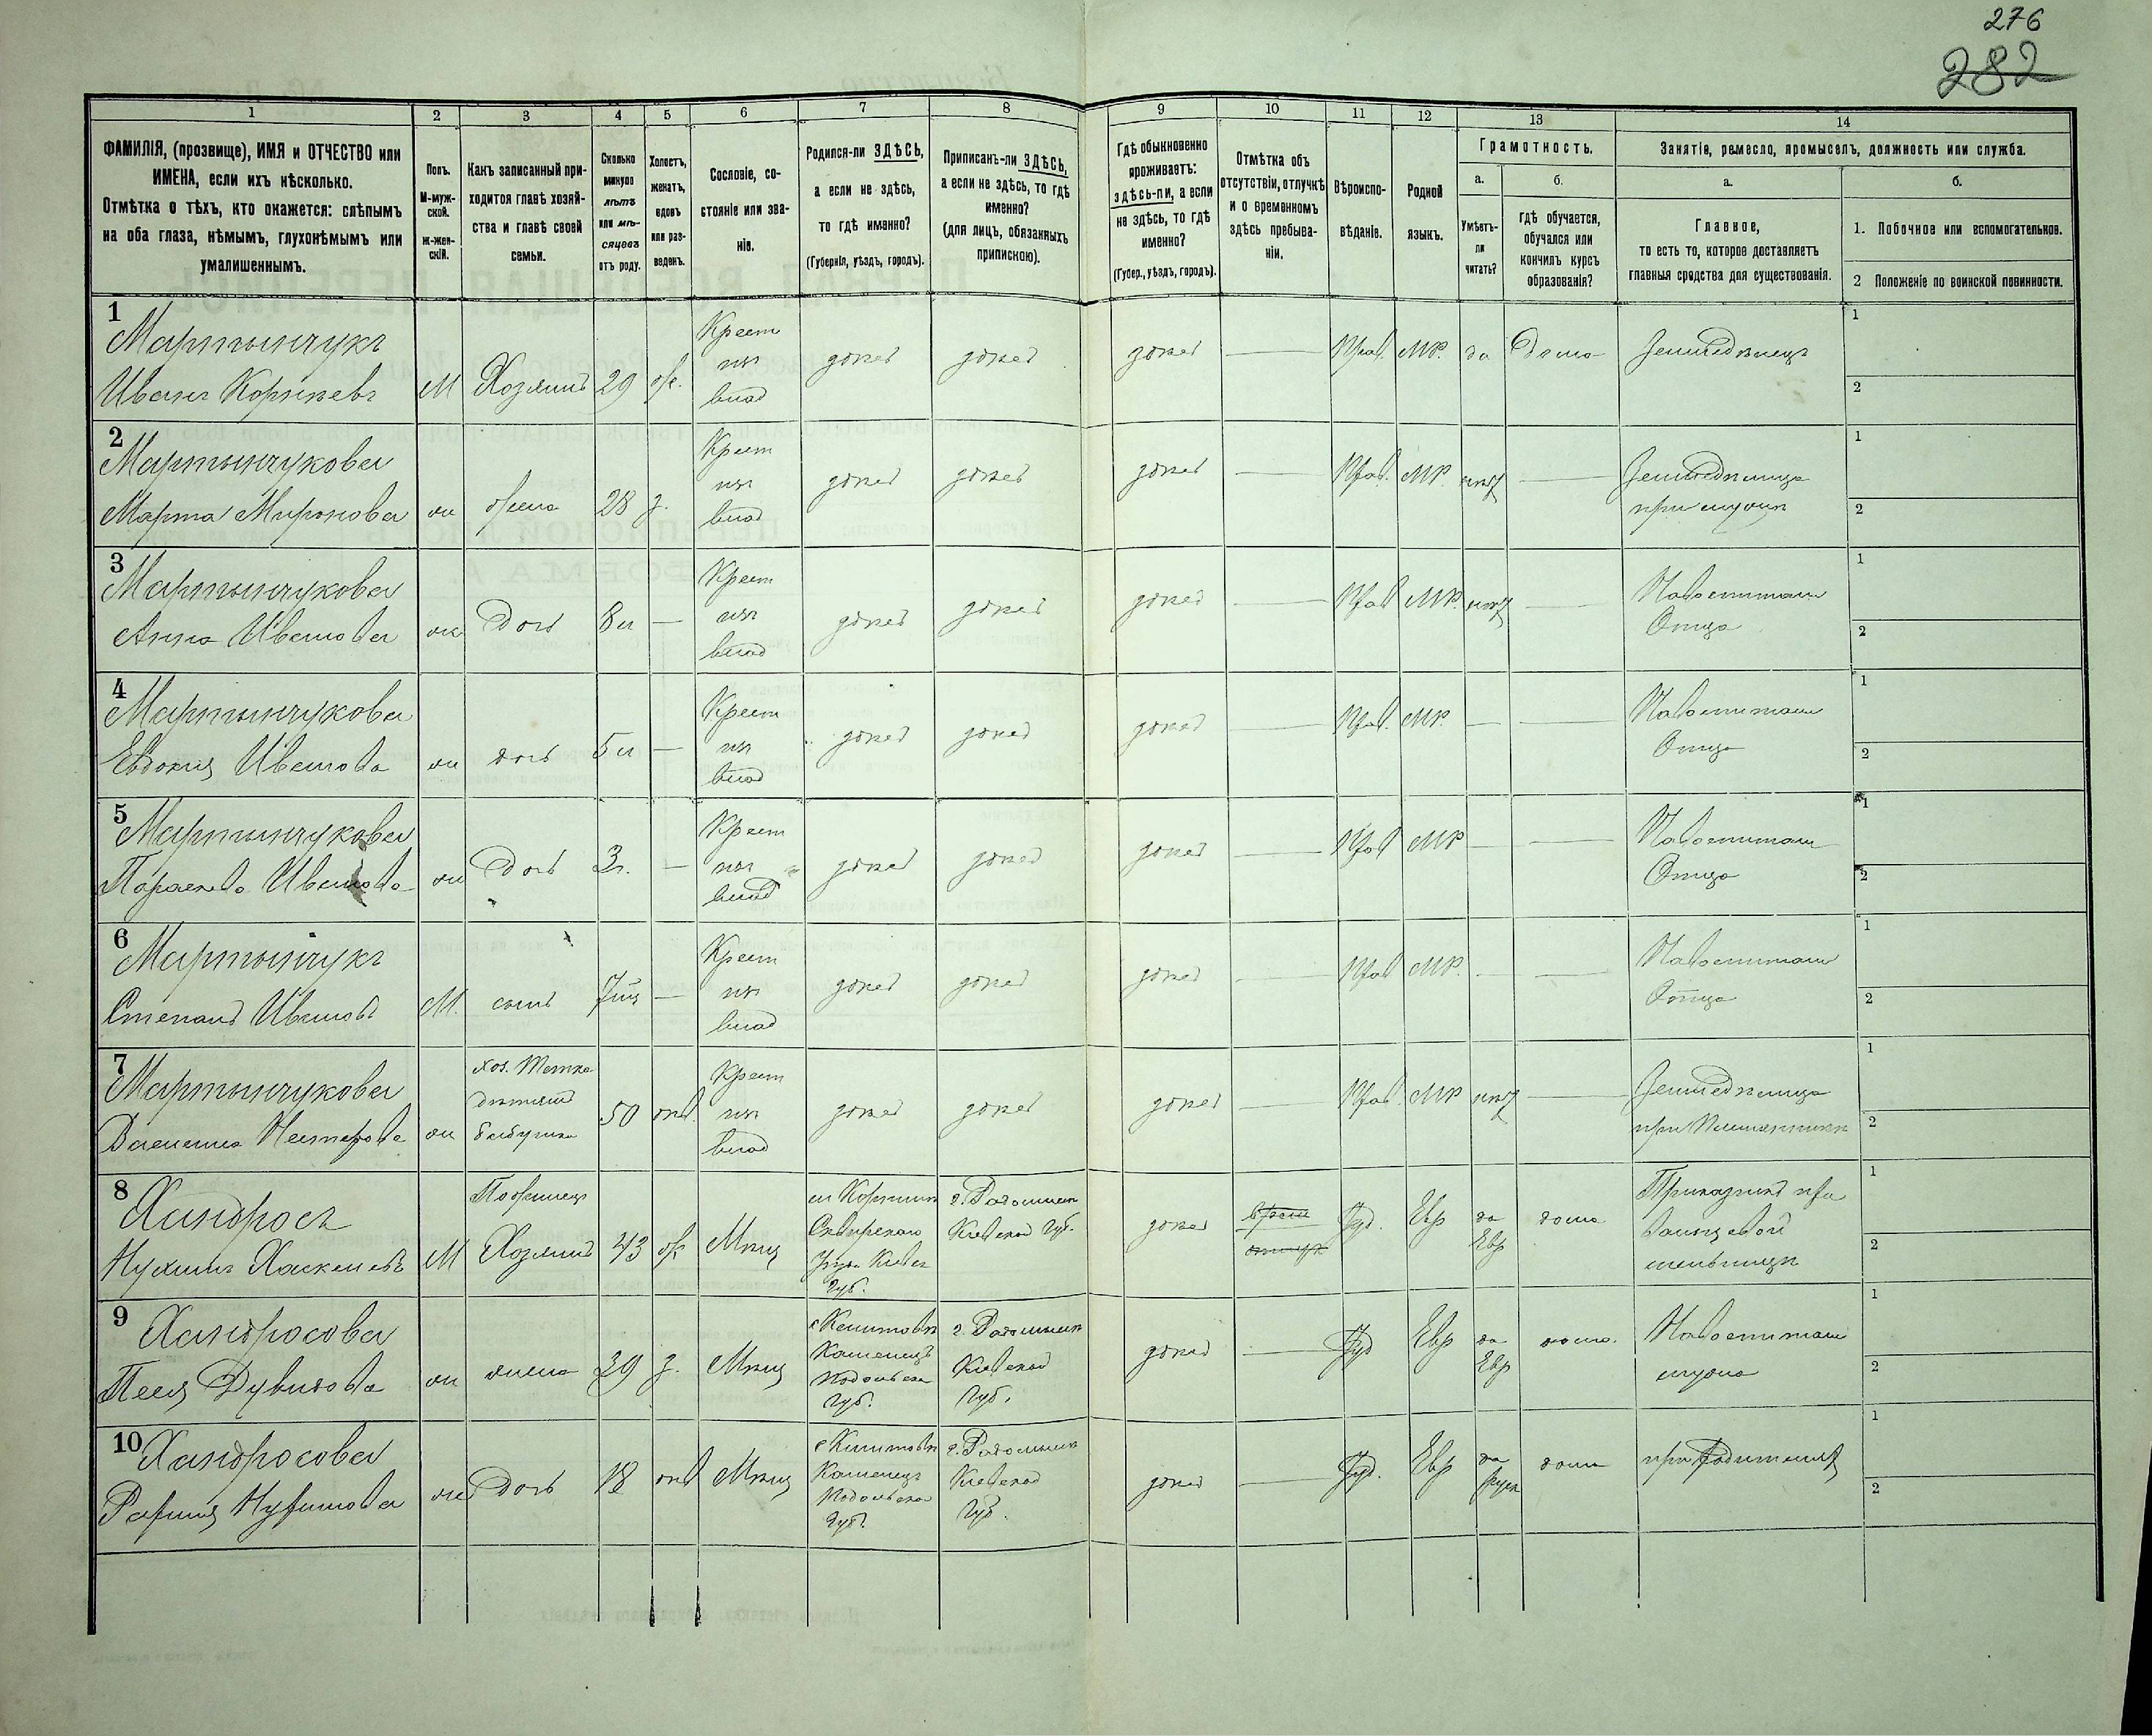 276
282
1
2
3
4
5
6
7
8
9
10
11
12
13
14
ФАМИЛІЯ, (прозвище), ИМЯ и ОТЧЕСТВО или
ИМЕНА, если ихъ нѣсколько.
Отмѣтка о тѣхъ, кто окажется: слѣпымъ
на оба глаза, нѣмымъ, глухонѣмымъ или
умалишеннымъ.
Полъ.
М-муж-
ской.
ж-жен-
скій.
Какъ записанный при-
ходится главѣ хозяй-
ства и главѣ своей
семьи.
Сколько
минуло
лѣтъ
или мѣ-
сяцевъ
отъ роду.
Холостъ,
женатъ,
вдовъ
или раз-
веденъ.
Сословіе, со-
стояніе или зва-
ніе.
Родился-ли ЗДѢСЬ,
а если не здѣсь,
то гдѣ именно?
(Губернія, уѣздъ, городъ).
Приписанъ-ли ЗДѢСЬ,
а если не здѣсь, то гдѣ
именно?
(для лицъ, обязанныхъ
припискою).
Гдѣ обыкновенно
проживаетъ:
здѣсь-ли, а если
не здѣсь, то гдѣ
именно?
(Губер., уѣздъ, городъ).
Отмѣтка объ
отсутствіи, отлучкѣ
и о временномъ
здѣсь пребыва-
ніи.
Вѣроиспо-
вѣданіе.
Родной
языкъ.
Грамотность.
а.
б.
Умѣетъ-
ли
читать?
гдѣ обучается,
обучался или
кончилъ курсъ
образованія?
Занятіе, ремесло, промыселъ, должность или служба.
а.
б.
Главное,
то есть то, которое доставляетъ
главныя средства для существованія.
1. Побочное или вспомогательное.
2 Положеніе по воинской повинности.
1
Мартынчукъ
Иванъ Корнѣевъ
М Хозяинъ 29 ж.
Крест
изъ
влад
здѣсь здѣсь здѣсь — Прав. МР. да Дома Земледѣлецъ
1
2
2
Мартынчукова
Марта Миронова
ж жена 28 з.
Крест
изъ
влад
здѣсь здѣсь здѣсь — Прав. МР. нѣт —
Земледѣлица
при мужѣ
1
2
3
Мартынчукова
Анна Иванова
ж Дочь 8л —
Крест
изъ
влад
здѣсь здѣсь здѣсь — Прав МР. нѣт —
На воспитан
Отца
1
2
4
Мартынчукова
Евдокія Иванова
ж дочь 5л —
Крест
изъ
влад
здѣсь здѣсь здѣсь — Прав. МР. — —
На воспитан
Отца
1
2
5
Мартынчукова
Параскева Иванова
ж Дочь 3г. —
Крест
изъ
влад
здѣсь здѣсь здѣсь — Прав МР — —
На воспитан
Отца
1
2
6
Мартынчукъ
Степанъ Ивановъ
М. сынъ 7мц —
Крест
изъ
влад
здѣсь здѣсь здѣсь — Прав МР. — —
На воспитан
Отца
1
2
7
Мартынчукова
Нестерова
ж
хоз. Тетка
бабушка
50
Крест
изъ
влад
здѣсь здѣсь здѣсь — Прав. МР нѣт —
Земледѣлица
при Племянникѣ
1
2
8
Хандросъ
Нухимъ Хаскелевъ
М
Хозяинъ
43 ж Мѣщ
Сквирскаго
Губ.
г. Радомысл
Кіевской Губ.
здѣсь
Іуд. Евр
да
Евр
дома
Приказчикъ при
вальцевой
мельницѣ
1
2
9
Хандросова
Песя Дувидова
ж жена 39 з. Мѣщ
Каменецъ
Подольска
Губ.
г. Радомысл
Кіевской
Губ.
здѣсь — Іуд Евр
да
Евр
дома.
На воспитан
мужа
1
2
10
Хандросова
Нухимова
ж Дочь 18 Мѣщ
Каменецъ
Подольска
Губ.
г. Радомысл
Кіевской
Губ.
здѣсь — Іуд. Евр
да
русск
дома
при родителяхъ
1
2